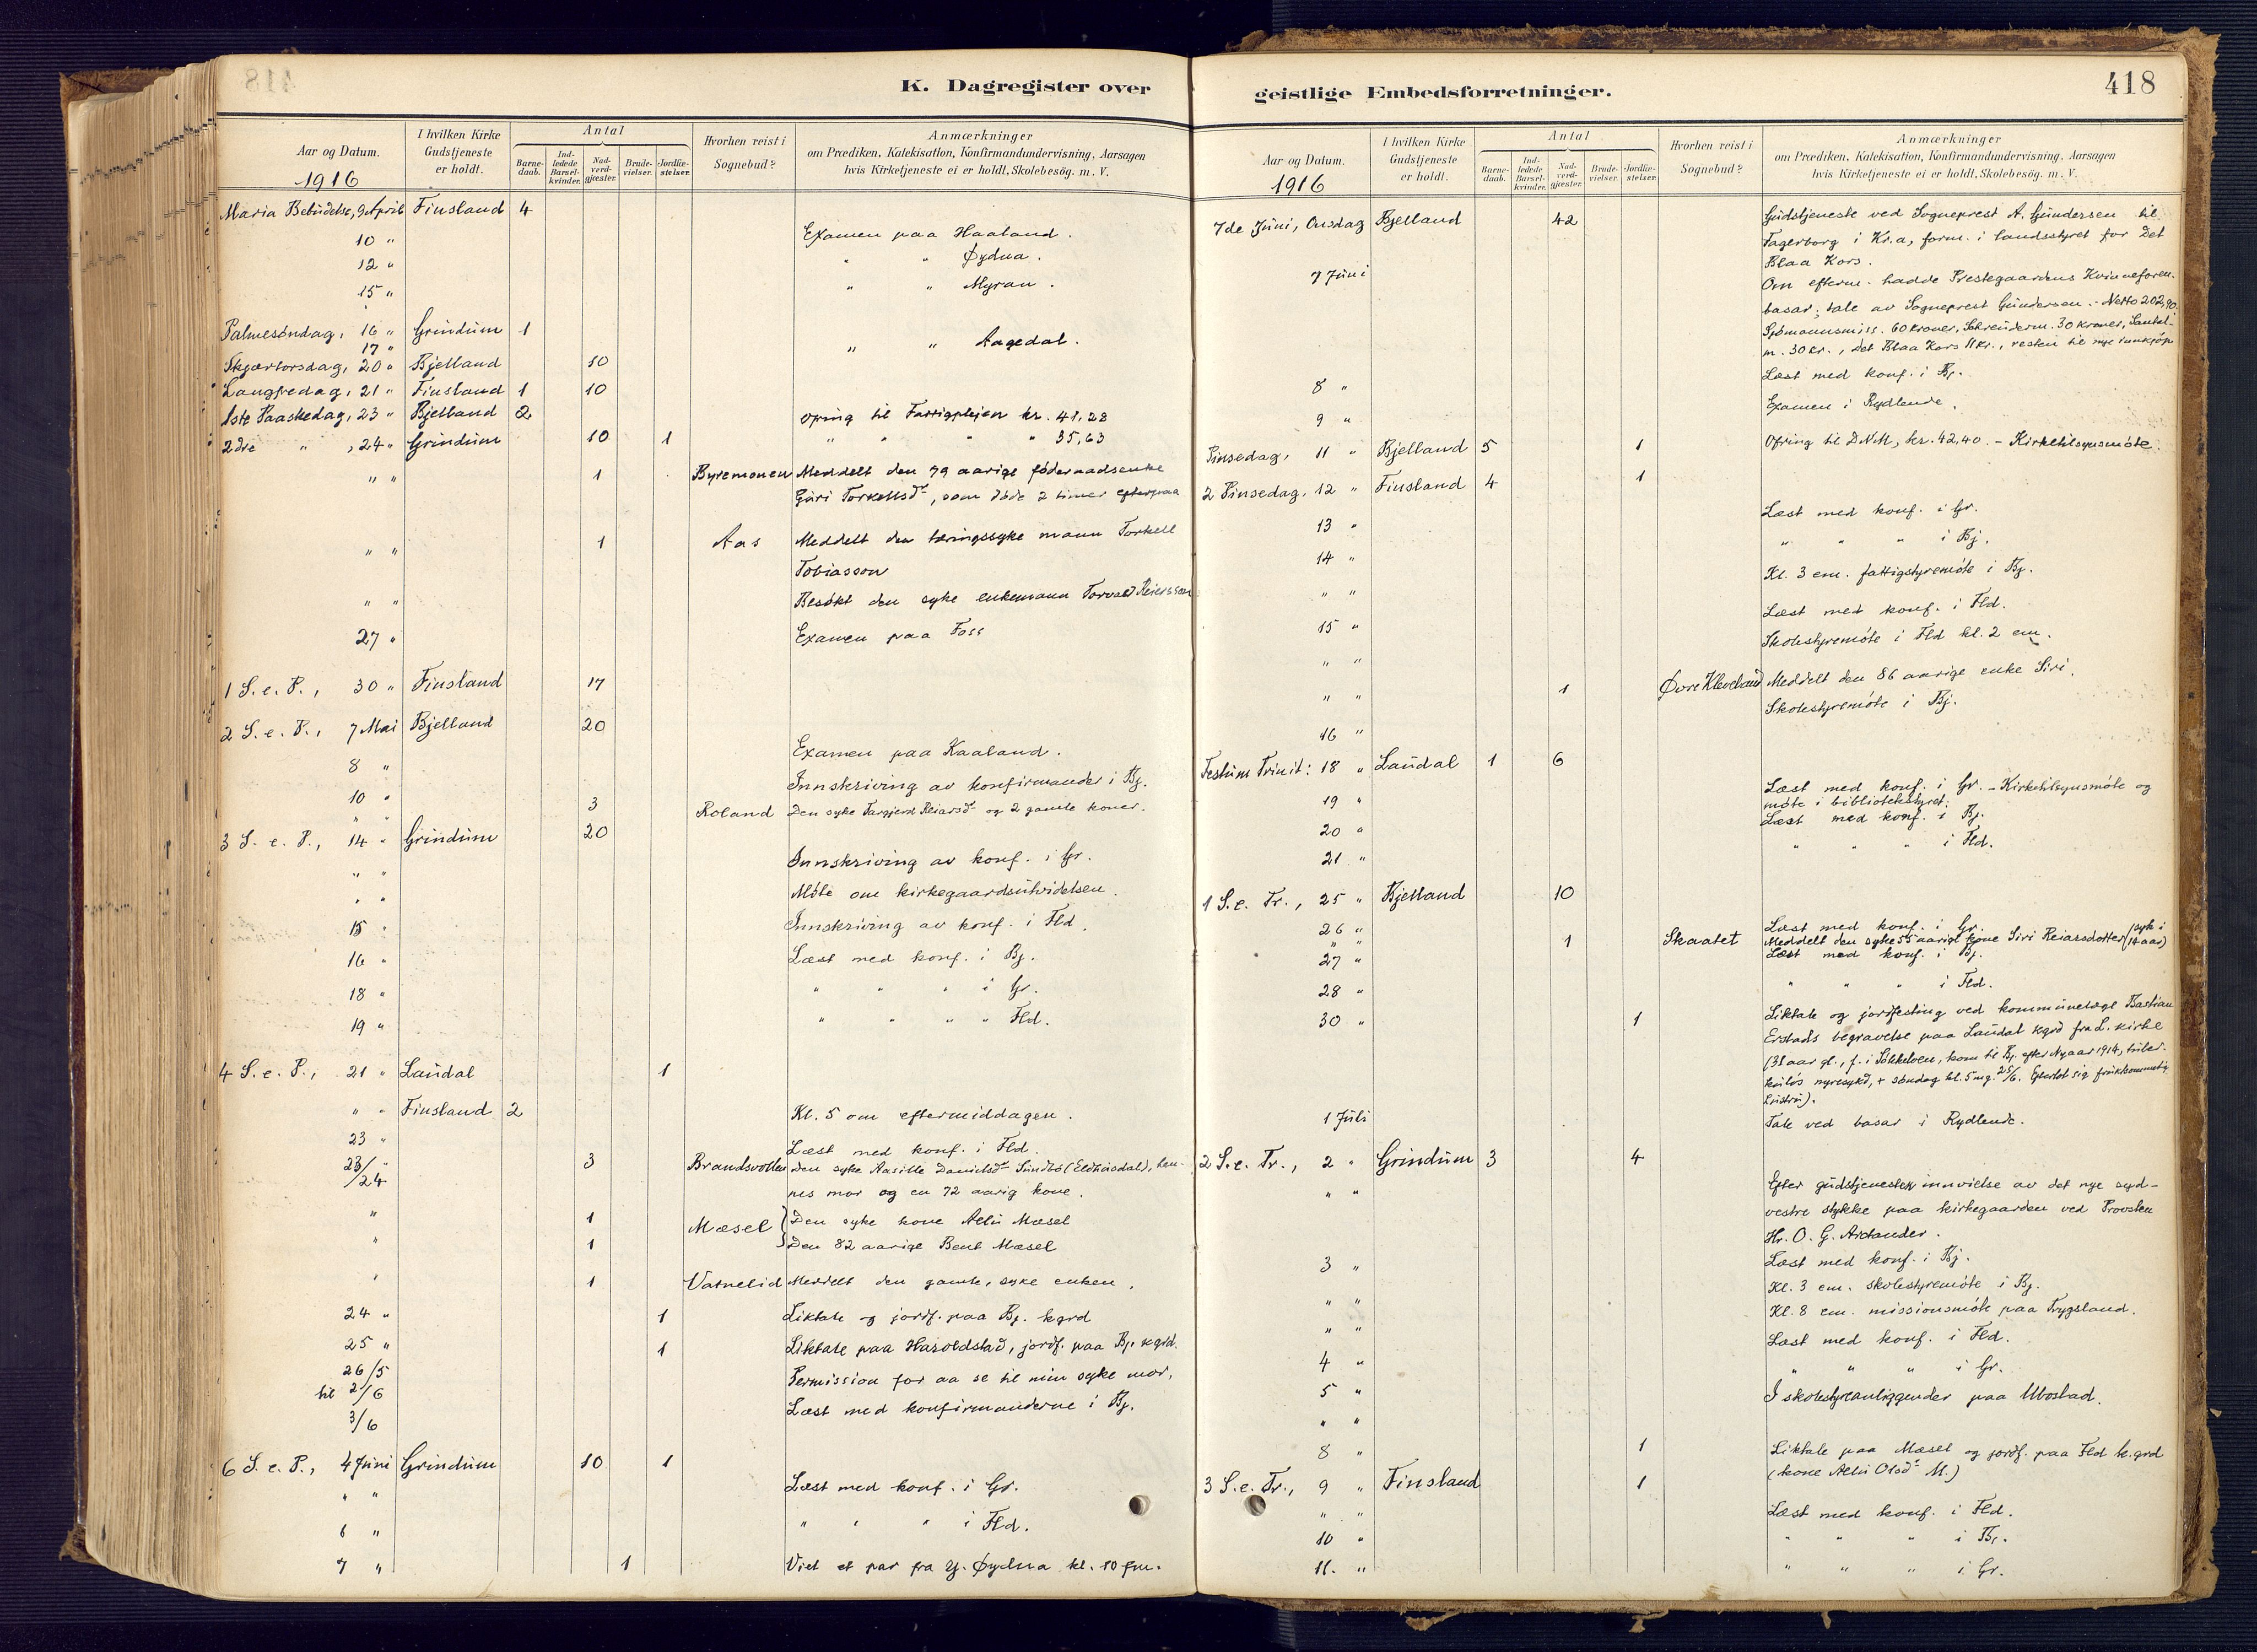 K. Dagregister over
Aar og Datum.
1916
I hvilken Kirke Gudstjeneste er holdt.
Antal
Barnedaab.
Indledede Barselkvinder.
Nadverdgjæster.
Brudevielser.
Jordfæstelser.
Hvorhen reist i Sognebud?
Anmærkninger
om Prædiken, Katekisation, Konfirmandundervisning, Aarsagen
hvis Kirketjeneste ei er holdt, Skolebesög. m. V.
Maria Bebudelse, 9 April Finsland 4
10 " Examen paa Haaland.
12 " " " Øydna.
15 " " " Myran.
Palmesøndag, 16 " Grindum 1
17 " " " Aagedal.
Skjærtorsdag, 20 " Bjelland 10
Langfredag, 21 " Finsland 1 10
1ste Paaskedag, 23 " Bjelland 2 Ofring til Fattigplejen kr. 41,28
2dre " , 24 " Grindum 10 1 " " " " 35,63
" " 1 Byremonen Meddelt den 79 aarige føderaadsenke
Guri Torkellsdr, som døde 2 timer efterpaa
" " 1 Aas Meddelt den tæringssyke mann Torkell
Tobiasson
" " Besøkt den syke enkemann Torvald Reiersson
27 " Examen paa Foss
1 S. e. P., 30 " Finsland 17
2 S. e. P., 7 Mai Bjelland 20
8 " Examen paa Kaaland.
10 " Innskriving av konfirmander i Bj.
" " 3 Roland Den syke Targjerd Reiarsdr og 2 gamle koner.
3 S. e. P., 14 " Grindum 20
" " Innskriving av konf. i Gr.
" " Møte om kirkegaardsutvidelsen.
15 " Innskriving av konf. i Fld.
16 " Læst med konf. i Bj.
18 " " " " i Gr.
19 " " " " " Fld.
4 S. e. P., 21 " Laudal 1
" " Finsland 2 Kl. 5 om eftermiddagen.
23 " Læst med konf. i Fld.
23/24 " 3 Brandsvollen Den syke Aasille Danielsdr Sundbø (Eldhusdal), hen-
nes mor og en 72 aarig kone.
" 1 Mæsel Den syke kone Aelu Mæsel
" 1 Den 82 aarige Bent Mæsel
" 1 Vatnelid Meddelt den gamle, syke enken.
24 " 1 Liktale og jordf. paa Bj. kgrd
25 " 1 Liktale paa Haroldstad, jordf. paa Bj. kgrd.
26/5
til 2/6 Permission for aa se til min syke mor.
3/6 Læst med konfirmanderne i Bj.
6 S. e. P., 4 Juni Grindum 10 1
" " Læst med konf. i Gr.
6 " " " " i Fld.
7 " 1 Viet et par fra Y. Øydna kl. 10 fm.
geistlige Embedsforretninger.
418
Aar og Datum.
1916
I hvilken Kirke Gudstjeneste er holdt.
Antal
Barnedaab.
Indledede Barselkvinder.
Nadverdgjæster.
Brudevielser.
Jordfæstelser.
Hvorhen reist i Sognebud?
Anmærkninger
om Prædiken, Katekisation, Konfirmandundervisning, Aarsagen
hvis Kirketjeneste ei er holdt, Skolebesög. m. V.
7de Juni, Onsdag Bjelland 42 Gudstjeneste ved Sogneprest A. Gundersen til
Fagerborg i Kr.a, form. i landsstyret for Det
Blaa Kors.
7 Juni Om efterm. hadde Prestegaardens Kvinneforen.
basar; tale av Sogneprest Gundersen. - Netto 202,90.
Sjømannsmiss. 60 kroner, Schreuderm. 30 kroner, Santal-
m. 30 kr., Det Blaa Kors 11 kr., resten til nye innkjøp
8 " Læst med konf. i Bj.
9 " Examen i Rydlende.
Pinsedag, 11 " Bjelland 5 1 Ofring til D.N.M., kr. 42,40. - Kirketilsynsmøte.
2 Pinsedag, 12 " Finsland 4 1
13 " Læst med konf. i Gr.
14 " " " " i Bj.
" " Kl. 3 em. fattigstyremøte i Bj.
15 " Læst med konf. i Fld.
" " Skolestyremøte i Fld kl. 2 em.
" " 1 Øvre Kleveland Meddelt den 86 aarige enke Siri.
16 " Skolestyremøte i Bj.
Festum Trinit: 18 " Laudal 1 6
19 " Læst med konf. i Gr. - Kirketilsynsmøte og
møte i bibliotekstyret.
20 " Læst med konf. i Bj.
21 " " " " i Fld.
1 S. e. Tr., 25 " Bjelland 10
26 " Læst med konf. i Gr.
" " 1 Skaatet Meddelt den syke 55 aarige kone Siri Reiarsdotter (syk i 14 aar)
27 " Læst med konf. i Bj.
28 " " " " i Fld.
30 " 1 Liktale og jordfesting ved kommunelæge Bastian
Erstads begravelse paa Laudal kgrd fra L. kirke
(31 aar gl., f. i , kom til Bj. efter Nyaar 1914, tuber-
kuløs nyresykd, + søndag kl. 5 mg. 25/6. Efterlot sig fruktsommelig
hustru).
1 Juli Tale ved basar i Rydlende.
2 S. e. Tr., 2 " Grindum 3 4
" " Efter gudstjenesten innvielse av det nye syd-
vestre stykke paa kirkegaarden ved Provsten
Hr. O. G. Arctander.
3 " Læst med konf. i Bj.
" " Kl. 3 em. skolestyremøte i Bj.
" " Kl. 8 em. missionsmøte paa Trygsland.
4 " Læst med konf. i Fld.
5 " " " " i Gr.
" " I skolestyreanliggender paa Ubostad.
8 " 1 Liktale paa Mæsel og jordf. paa Fld k.grd
(kone Aelu Olsdr M.)
3 S. e. Tr., 9 " Finsland 1
" " Læst med konf. i Fld.
10 " " " " i Bj.
11. " " " " i Gr.